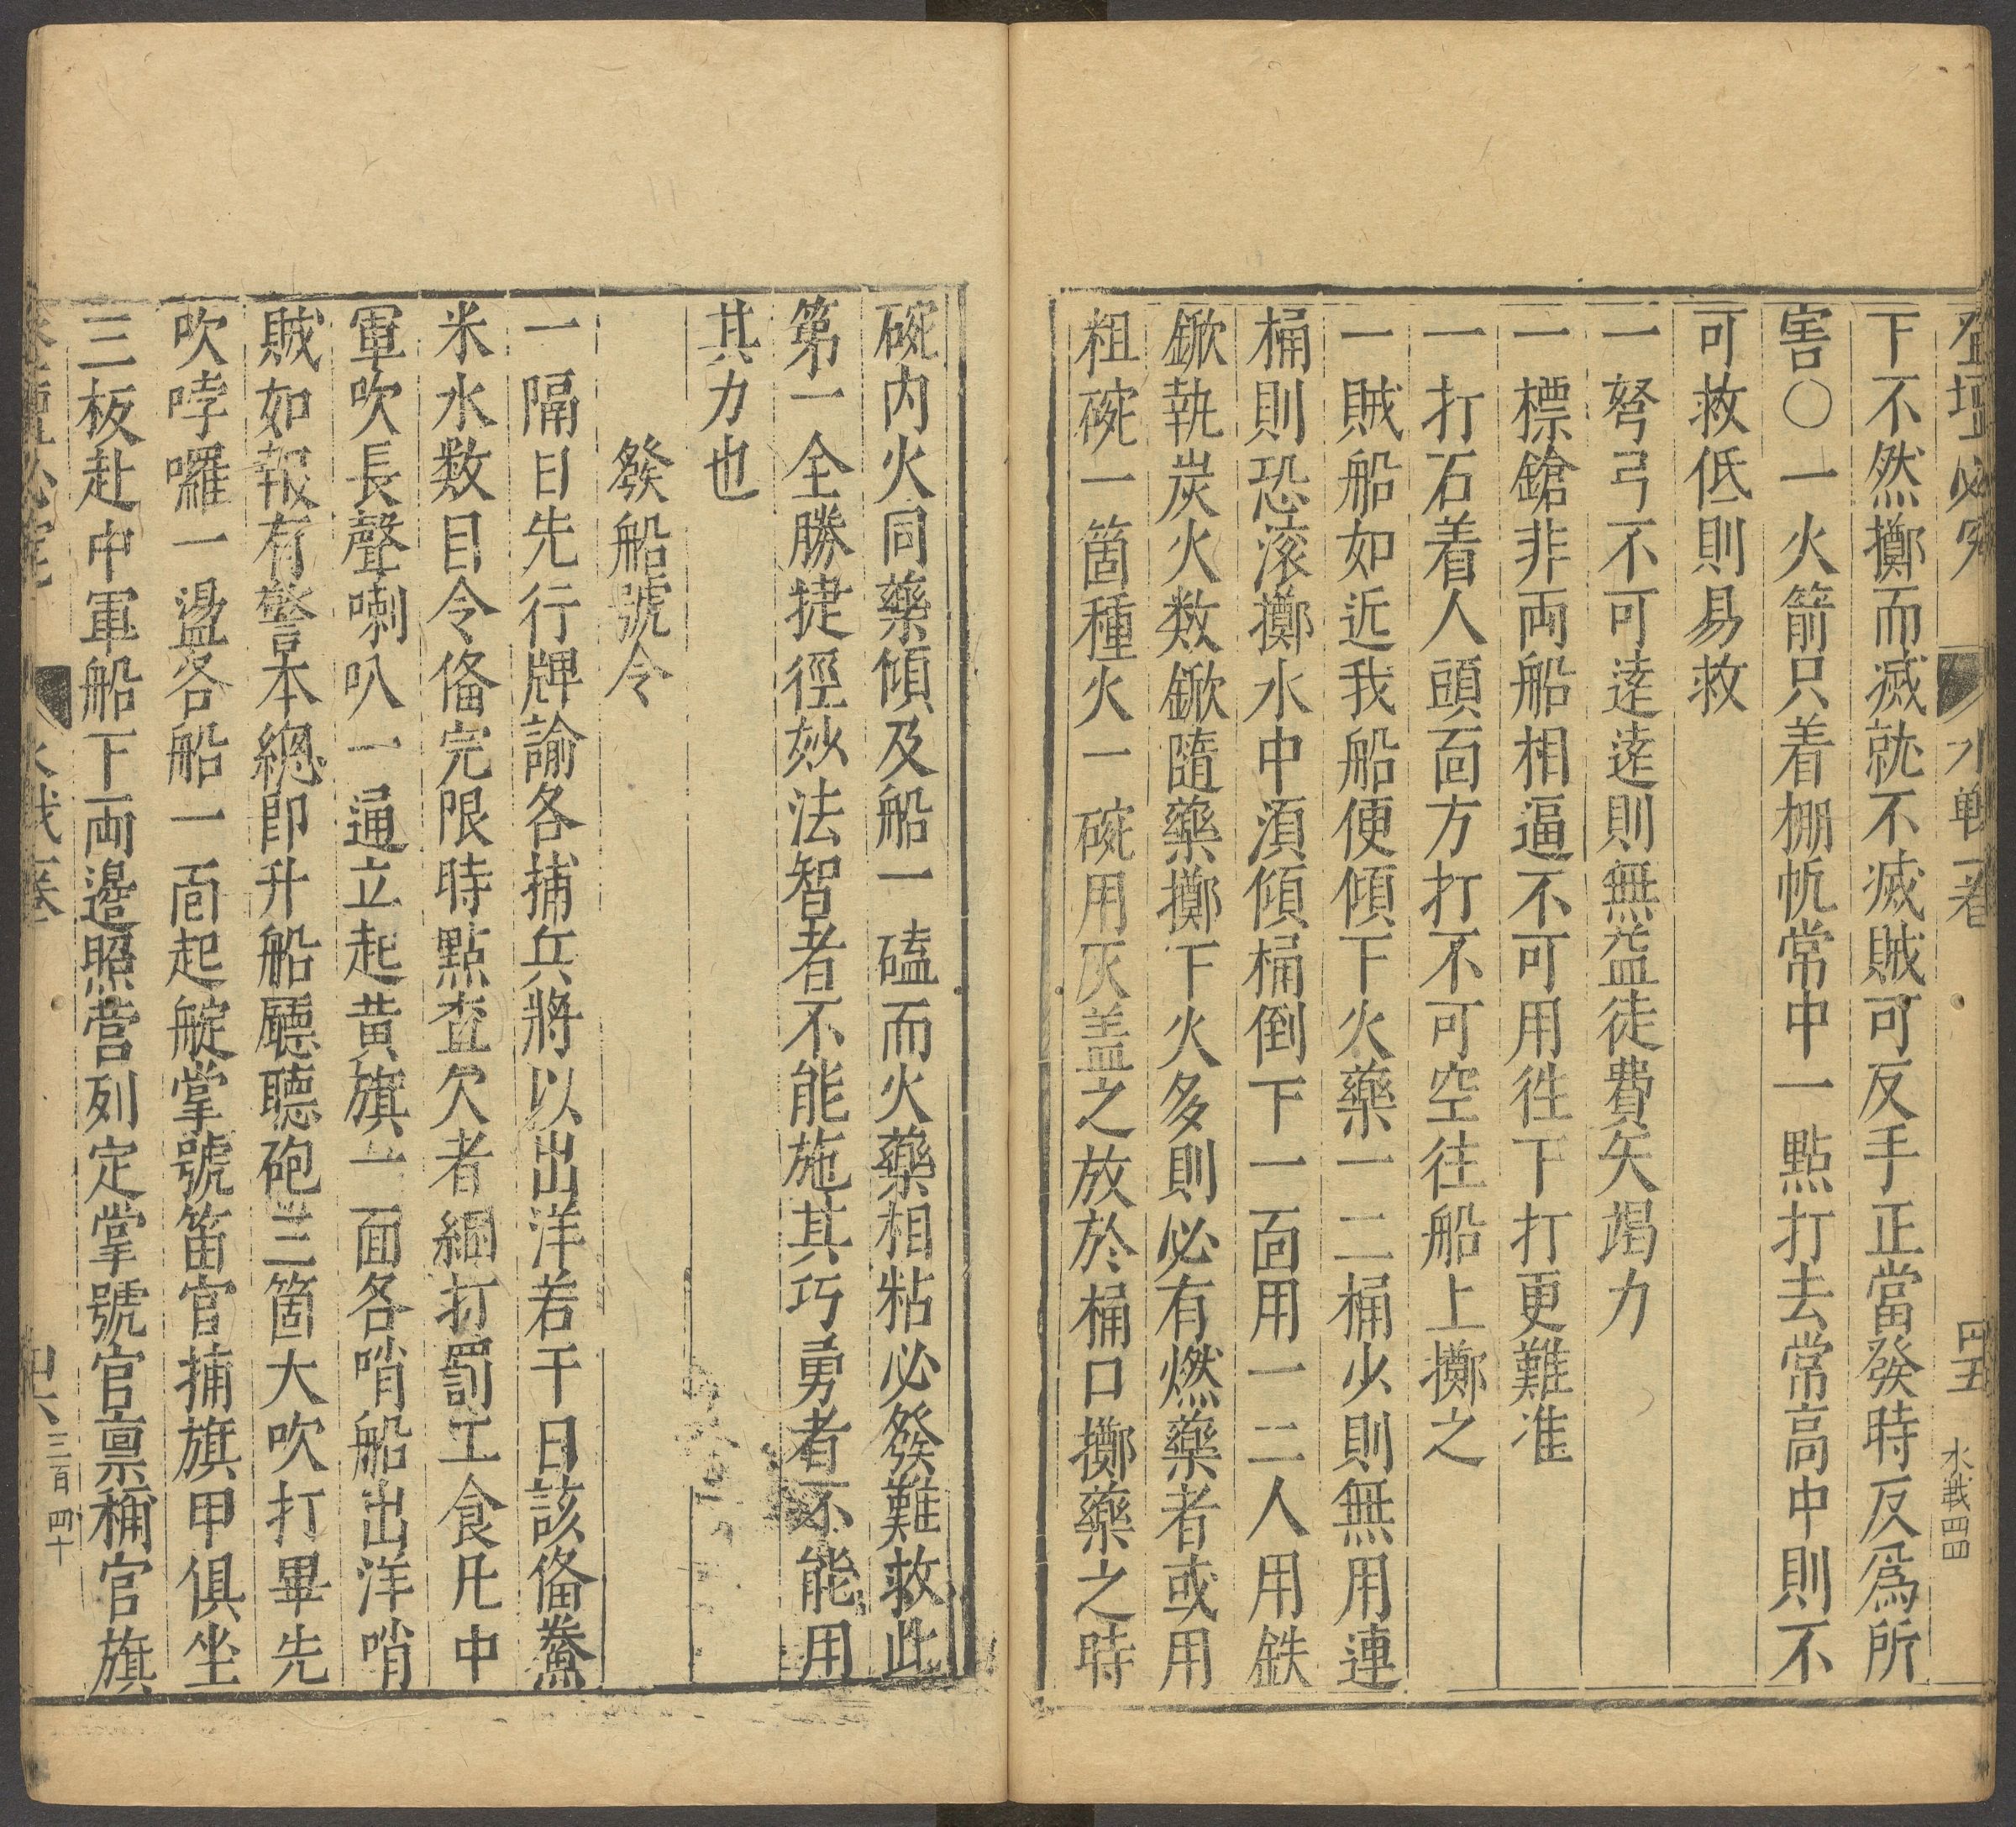 登壇必究
水戰一卷
四五
水戰四四
下不然擲而滅就不滅賊可反手正當發時反爲所
害〇一火箭只着棚帆常中一點打去常高中則不
可救低則易救
一弩弓不可逺逺則無益徒費矢竭力
一標鎗非両船相逼不可用徃下打更難准
一打石着人頭靣方打不可空往船上擲之
一賊船如近我船便傾下火藥一二桶少則無用連
桶則恐滚擲水中湏傾桶倒下一靣用一二人用鉄
鍁執炭火数鍁隨藥擲下火多則必有燃藥者或用
粗碗一箇種火一碗用灰盖之放於桶口擲藥之時
碗内火同藥傾及船一磕而火藥相粘必發難救此
第一全勝捷徑玅法智者不能施其巧勇者不能用
其力也
發船號令
一隔日先行牌諭各捕兵將以出洋若干日該俻薪
米水数目令俻完限時點查欠者綑打罰工食凡中
軍吹長聲喇叭一通立起黄旗一面各哨船出洋哨
賊如報有警本總即升船廳聽砲三箇大吹打畢先
吹哱囉一盪各船一靣起碇掌號笛官捕旗甲俱坐
三板赴中軍船下両邉照营列定掌號官禀稱官旗
登壇必究
水戰一卷
四六
三百四十